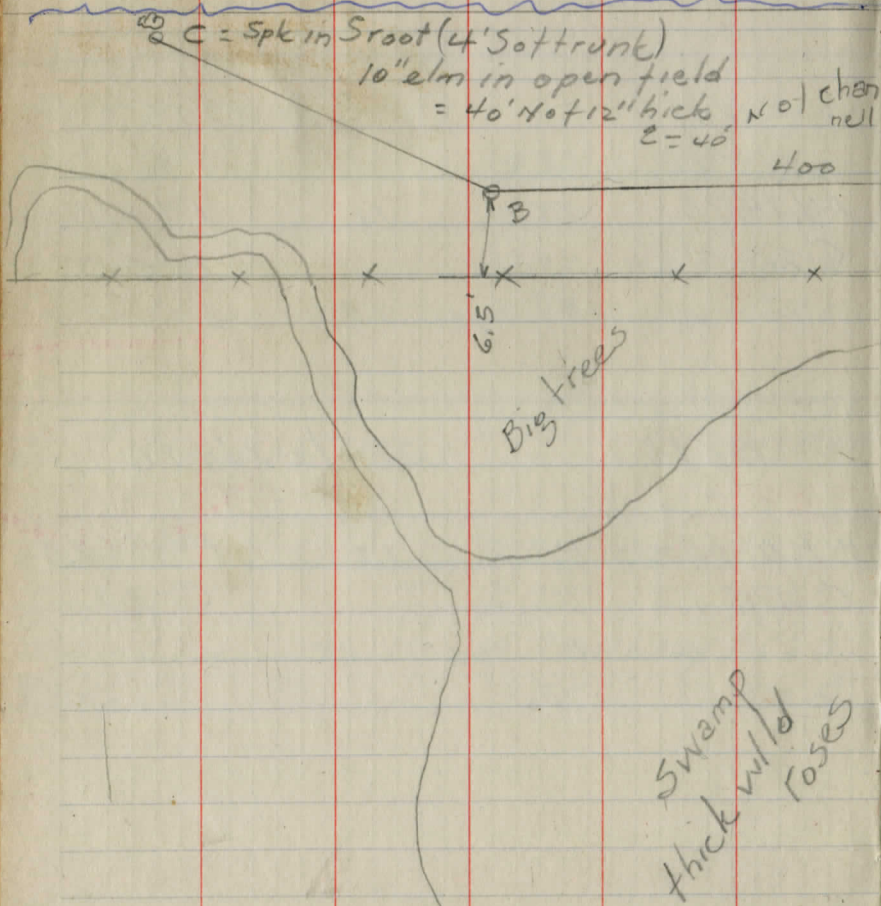 C = Spk in S root (4' S of trunk)
10" elm in open field
= 40' N of 12" hick
N of chan
nell
= 40'
400
B
6.5'
Big trees
Swamp
thick wild
roses